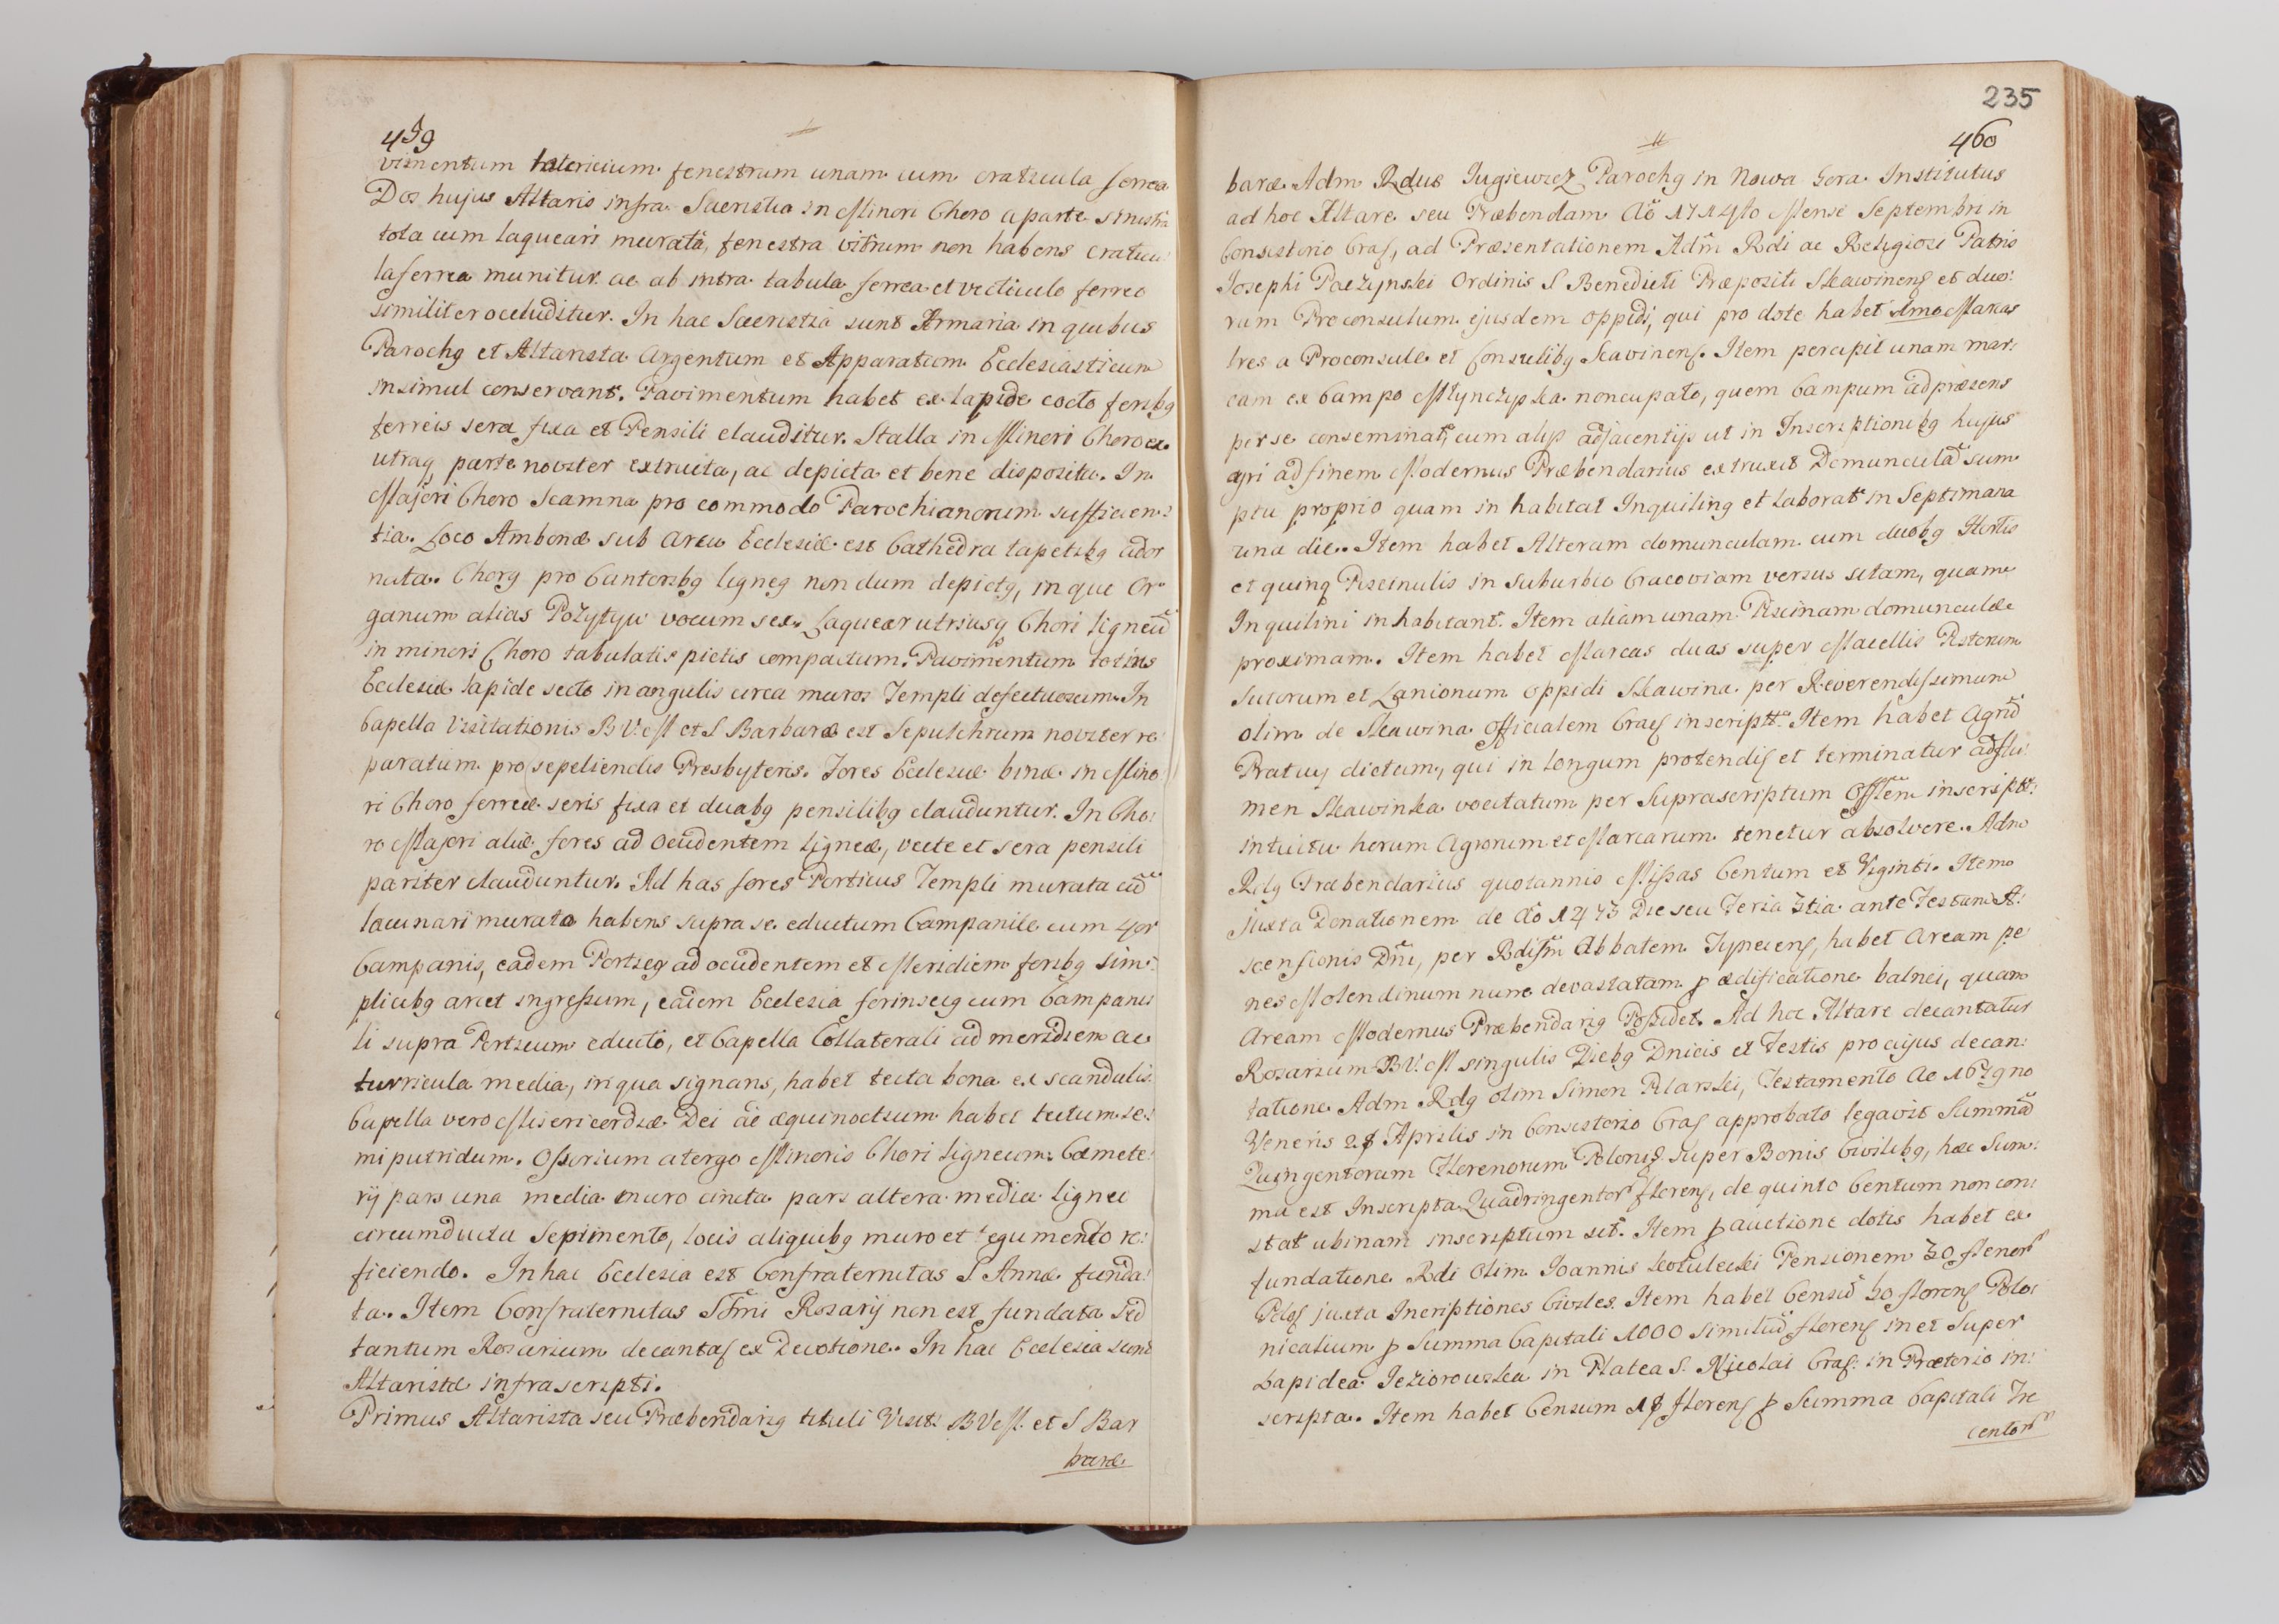 459
vimentum latericium fenestram unam cum craticula ferrea
Dos hujus Altaris infra. Sacristia in Minori Choro a parte sinistra
tota cum laqueari murata, fenestra vitrum non habens craticu:
la ferrea munitur ac ab intra tabula ferrea et vecticulo ferreo
similiter occluditur. In hac Sacristia sunt Armaria in quibus
Parochg et Altarista Argentum et Apparatum Ecclesiasticum
insimul conservant. Pavimentum habet ex lapide cocto foribg
ferreis sera fixa et Pensili clauditur. Stalla in Minori Choro ex
utraq parte noviter extructa, ac depicta et bene disposita. In
Majori Choro Scamna pro commodo Parochianorum sufficien:
tia. Loco Ambonæ sub arcu Ecclesiæ est Cathedra tapetibg ador
nata. Chorg pro Cantoribg ligneg non dum depictg, in quo Or
ganum alias Pozytyw vocum sex. Laquear utriusq Chori ligneũ
in minori Choro tabulatis pictis compactum. Pavimentum totius
Ecclesiæ lapide secto in angulis circa muros Templi defectuosum. In
Capella Visitationis B V: M et S Barbaræ est Sepulchrum noviter re
paratum pro sepeliendis Presbyteris. Fores Ecclesiæ binæ in Mino
ri Choro ferreæ seris fixa et duabg pensilibg clauduntur. In Cho:
ro Majori aliæ fores ad Occidentem ligneæ, vecte et sera pensili
pariter clauduntur. Ad has fores Porticus Templi murata cũ
lacunari murato habens supra se eductum Campanile cum 4or
Campanis, eadem Porticg ad occidentem et Meridiem foribg sim:
plicibg arcet ingressum, eadem Ecclesia forinsecg cum Campani
li supra Porticum educto, et Capella Collaterali ad meridiem ac
turricula media, in qua signans, habet tecta bona ex scandulis
Capella vero Misericordiæ Dei ad æquinoctium habet tectum se:
mi putridum. Ossorium a tergo Minoris Chori ligneum. Cæmete:
rij pars una media muro cincta pars altera media ligneo
circumducta Sepimento, locis aliquibg muro et tegumento re:
ficiendo. In hac Ecclesia est Confraternitas S Annæ funda:
ta. Item Confraternitas SSmi Rosarij non est fundata sed
tantum Rosarium decantaʃ ex Devotione. In hac Ecclesia sunt
Altaristæ infrascripti.
Primus Altarista seu Præbendarig tituli Visit: B V M. et S Bar
baræ
235
460
baræ Adm Rdus Jugiewicz Parochg in Nowa Gora Institutus
ad hoc Altare seu Præbendam Aõ Mense Septembri in
Consistorio Craʃ, ad Præsentationem Adm̃ Rdi ac Religiosi Patris
Josephi Paczynski Ordinis S Benedicti Præpositi Skawinenʃ et duo:
rum Proconsulum ejusdem oppidi, qui pro dote habet Imo Marcas
tres a Proconsule et Consulibg Skavinenʃ. Item percipit unam mar:
cam ex Campo Młynczyska noncupato, quem Campum ad præsens
per se conseminat, cum alijs adjacentijs ut in Inscriptionibg hujus
agri ad finem Modernus Præbendarius extruxit Domunculã sum
ptu proprio quam in habitat Inquiling et laborat in Septimana
una die. Item habet Alteram domunculam cum duobg Hortis
et quinq Piscinulis in Suburbio Cracoviam versus sitam, quam
Inquilini inhabitant. Item aliam unam Piscinam domunculæ
proximam. Item habet Marcas duas super Macellis Pistorum
Sutorum et Lanionum oppidi Skawina per Reverendissimum
olim de Skawina Officialem Craʃ inscriptt. Item habet Agrũ
Pratuy dictum, qui in longum protendiʃ et terminatur ad flu:
men Skawinka vocitatum per Suprascriptum Offlem inscriptt:
intuitu horum Agrorum et Marcarum tenetur absolvere Adm
Rdg Præbendarius quotannis Missas Centum et Viginti. Item
juxta Donationem de Aõ 1473 Die seu Feria 3tia ante Festum A:
scensionis Dñi, per Rdissm̃ Abbatem Tynecenʃ, habet Aream pe
nes Molendinum nunc devastatam p ædificatione balnei, quam
Aream Modernus Præbendarig Possidet. Ad hoc Altare decantatur
Rosarium B V: M singulis Diebg Dnicis et Festis pro cujus decan:
tatione Adm Rdg olim Simon Pilarski, Testamento
Veneris Aprilis in Consistorio Craʃ approbato legavit Summã
Quingentorum Florenorum Polonʃ super Bonis Civilibg, hæc Sum:
ma est Inscripta Quadringentor florenʃ, de quinto Centum non con:
stat ubinam inscriptum sit. Item p auctione dotis habet ex
fundatione Rdi Olim Joannis Pensionem 30 flenor
Polʃ juxta Incriptiones Civiles. Item habet Censũ florenʃ Polo:
nicalium p Summa Capitali 1000 similiũ florenʃ in et super
Lapidea Jeziorowska in Platea S. Nicolai Craʃ: in Prætorio in:
scripta. Item habet Censum 18 florenʃ p Summa Capitali Tre
centor